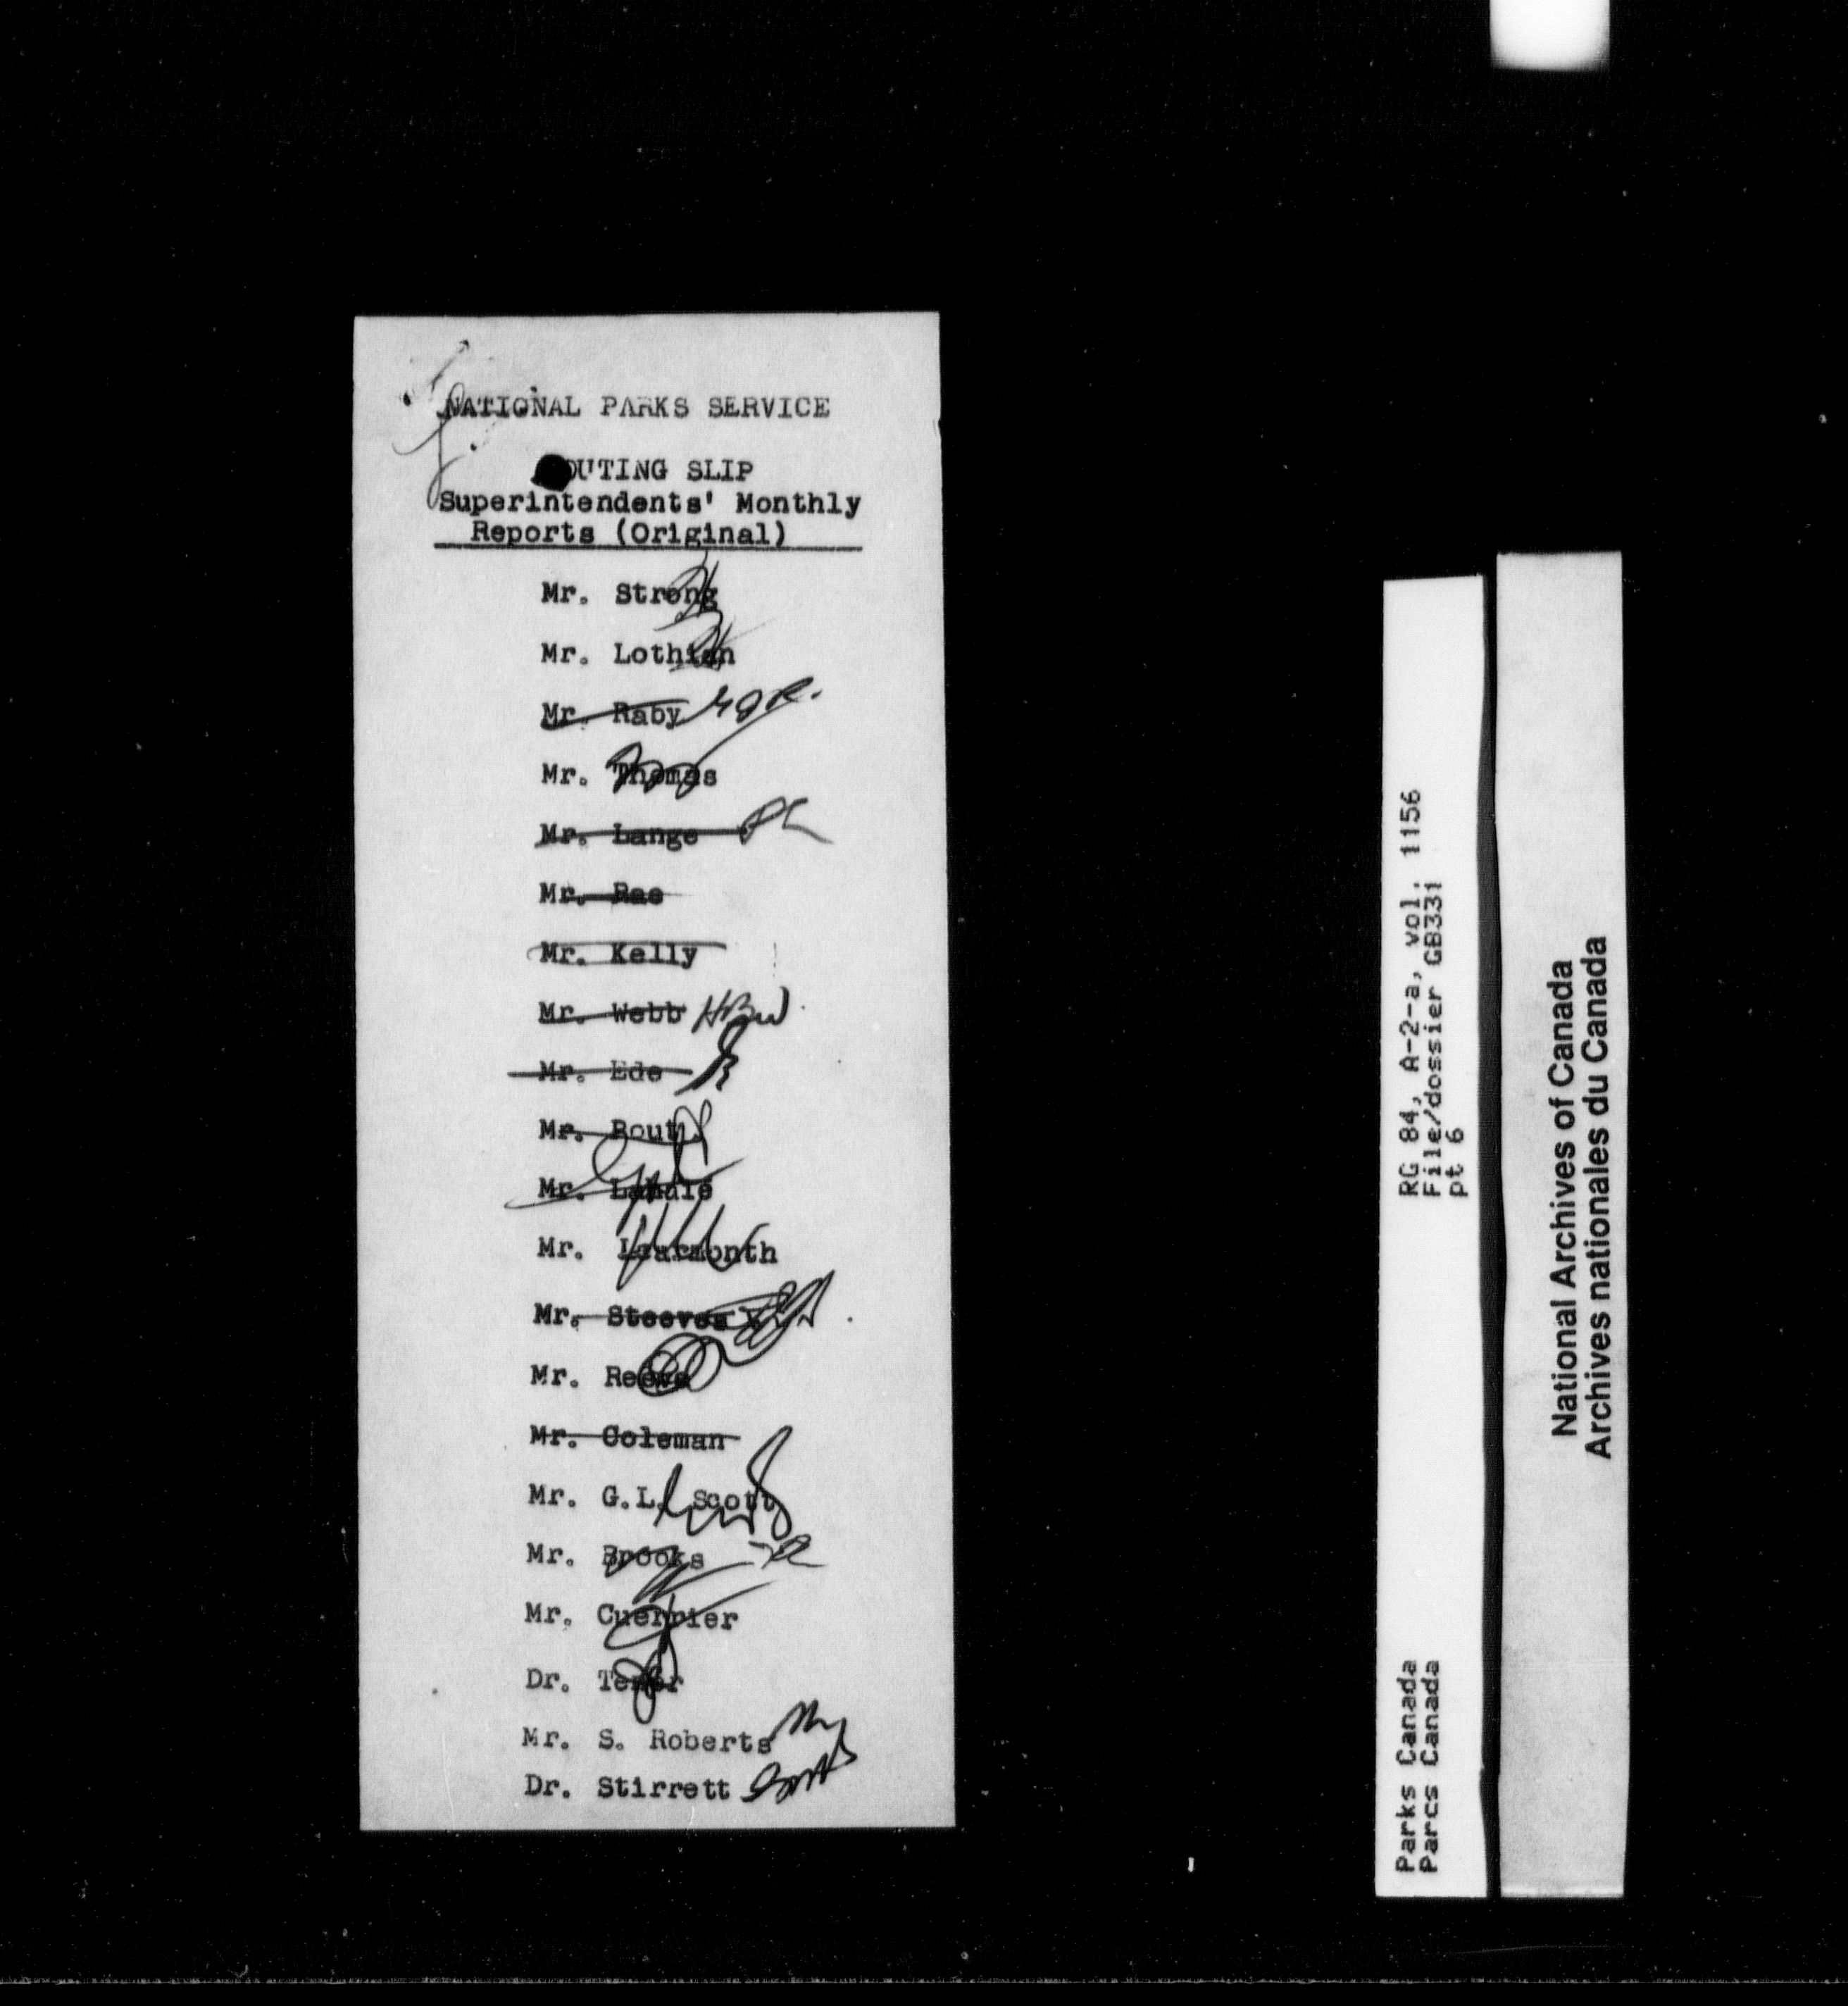 NATIONAL PARKS SERVICE
ROUTING SLIP
Superintendents' Monthly
Reports (Original)
Mr. Strong
Mr. Lothian
Mr. Raby
Mr. Thomas
Mr. Lange PL
Mr. Rae
Mr. Kelly
Mr. Webb HBW
Mr. Ede
Mr.
Mr.
Mr. Learmonth
Mr. Steeves
Mr. Reeve
Mr. Coleman
Mr. G.L. Scott
Mr. Brooks
Mr. Cuerrier
Dr. Tener
Mr. S. Roberts
Dr. Stirrett
RG 84, A-2-a, vol. 1156
File/dossier GB331
pt 6
Parks Canada
Parcs Canada
National Archives of Canada
Archives nationales du Canada